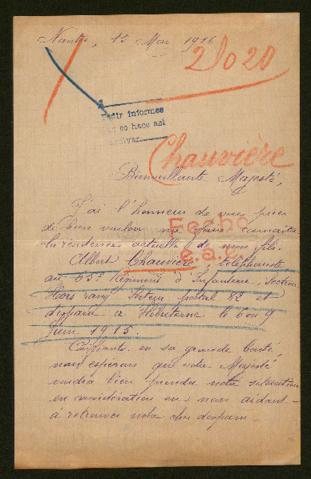 Nantes, 15 Mai 1916
2020
Pedir informes
y si no hace así
archivar
Chauvière
Bienveillante Majesté,
J'ai l'honneur de vous prier
de bien vouloir me faire connaître
la résidence actuelle de mon fils.
Fecho
Albert Chauvière, téléphoniste
e.a.
au 65e Régiment d'Infanterie, Section
Hors rang Secteur postal 82 et
disparu à Hébuterne le 8 ou 9
Juin 1915.
Confiants en sa grande bonté,
nous espérons que votre Majesté
voudra bien prendre notre situation
en considération en nous aidant
à retrouver notre cher disparu.